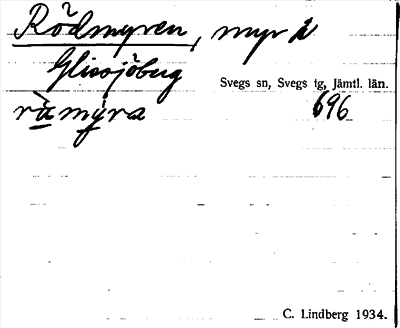 Rödmyren, myr i
Glissjöberg
Svegs sn, Svegs tg, Jämtl. län.
696
C. Lindberg 1934.